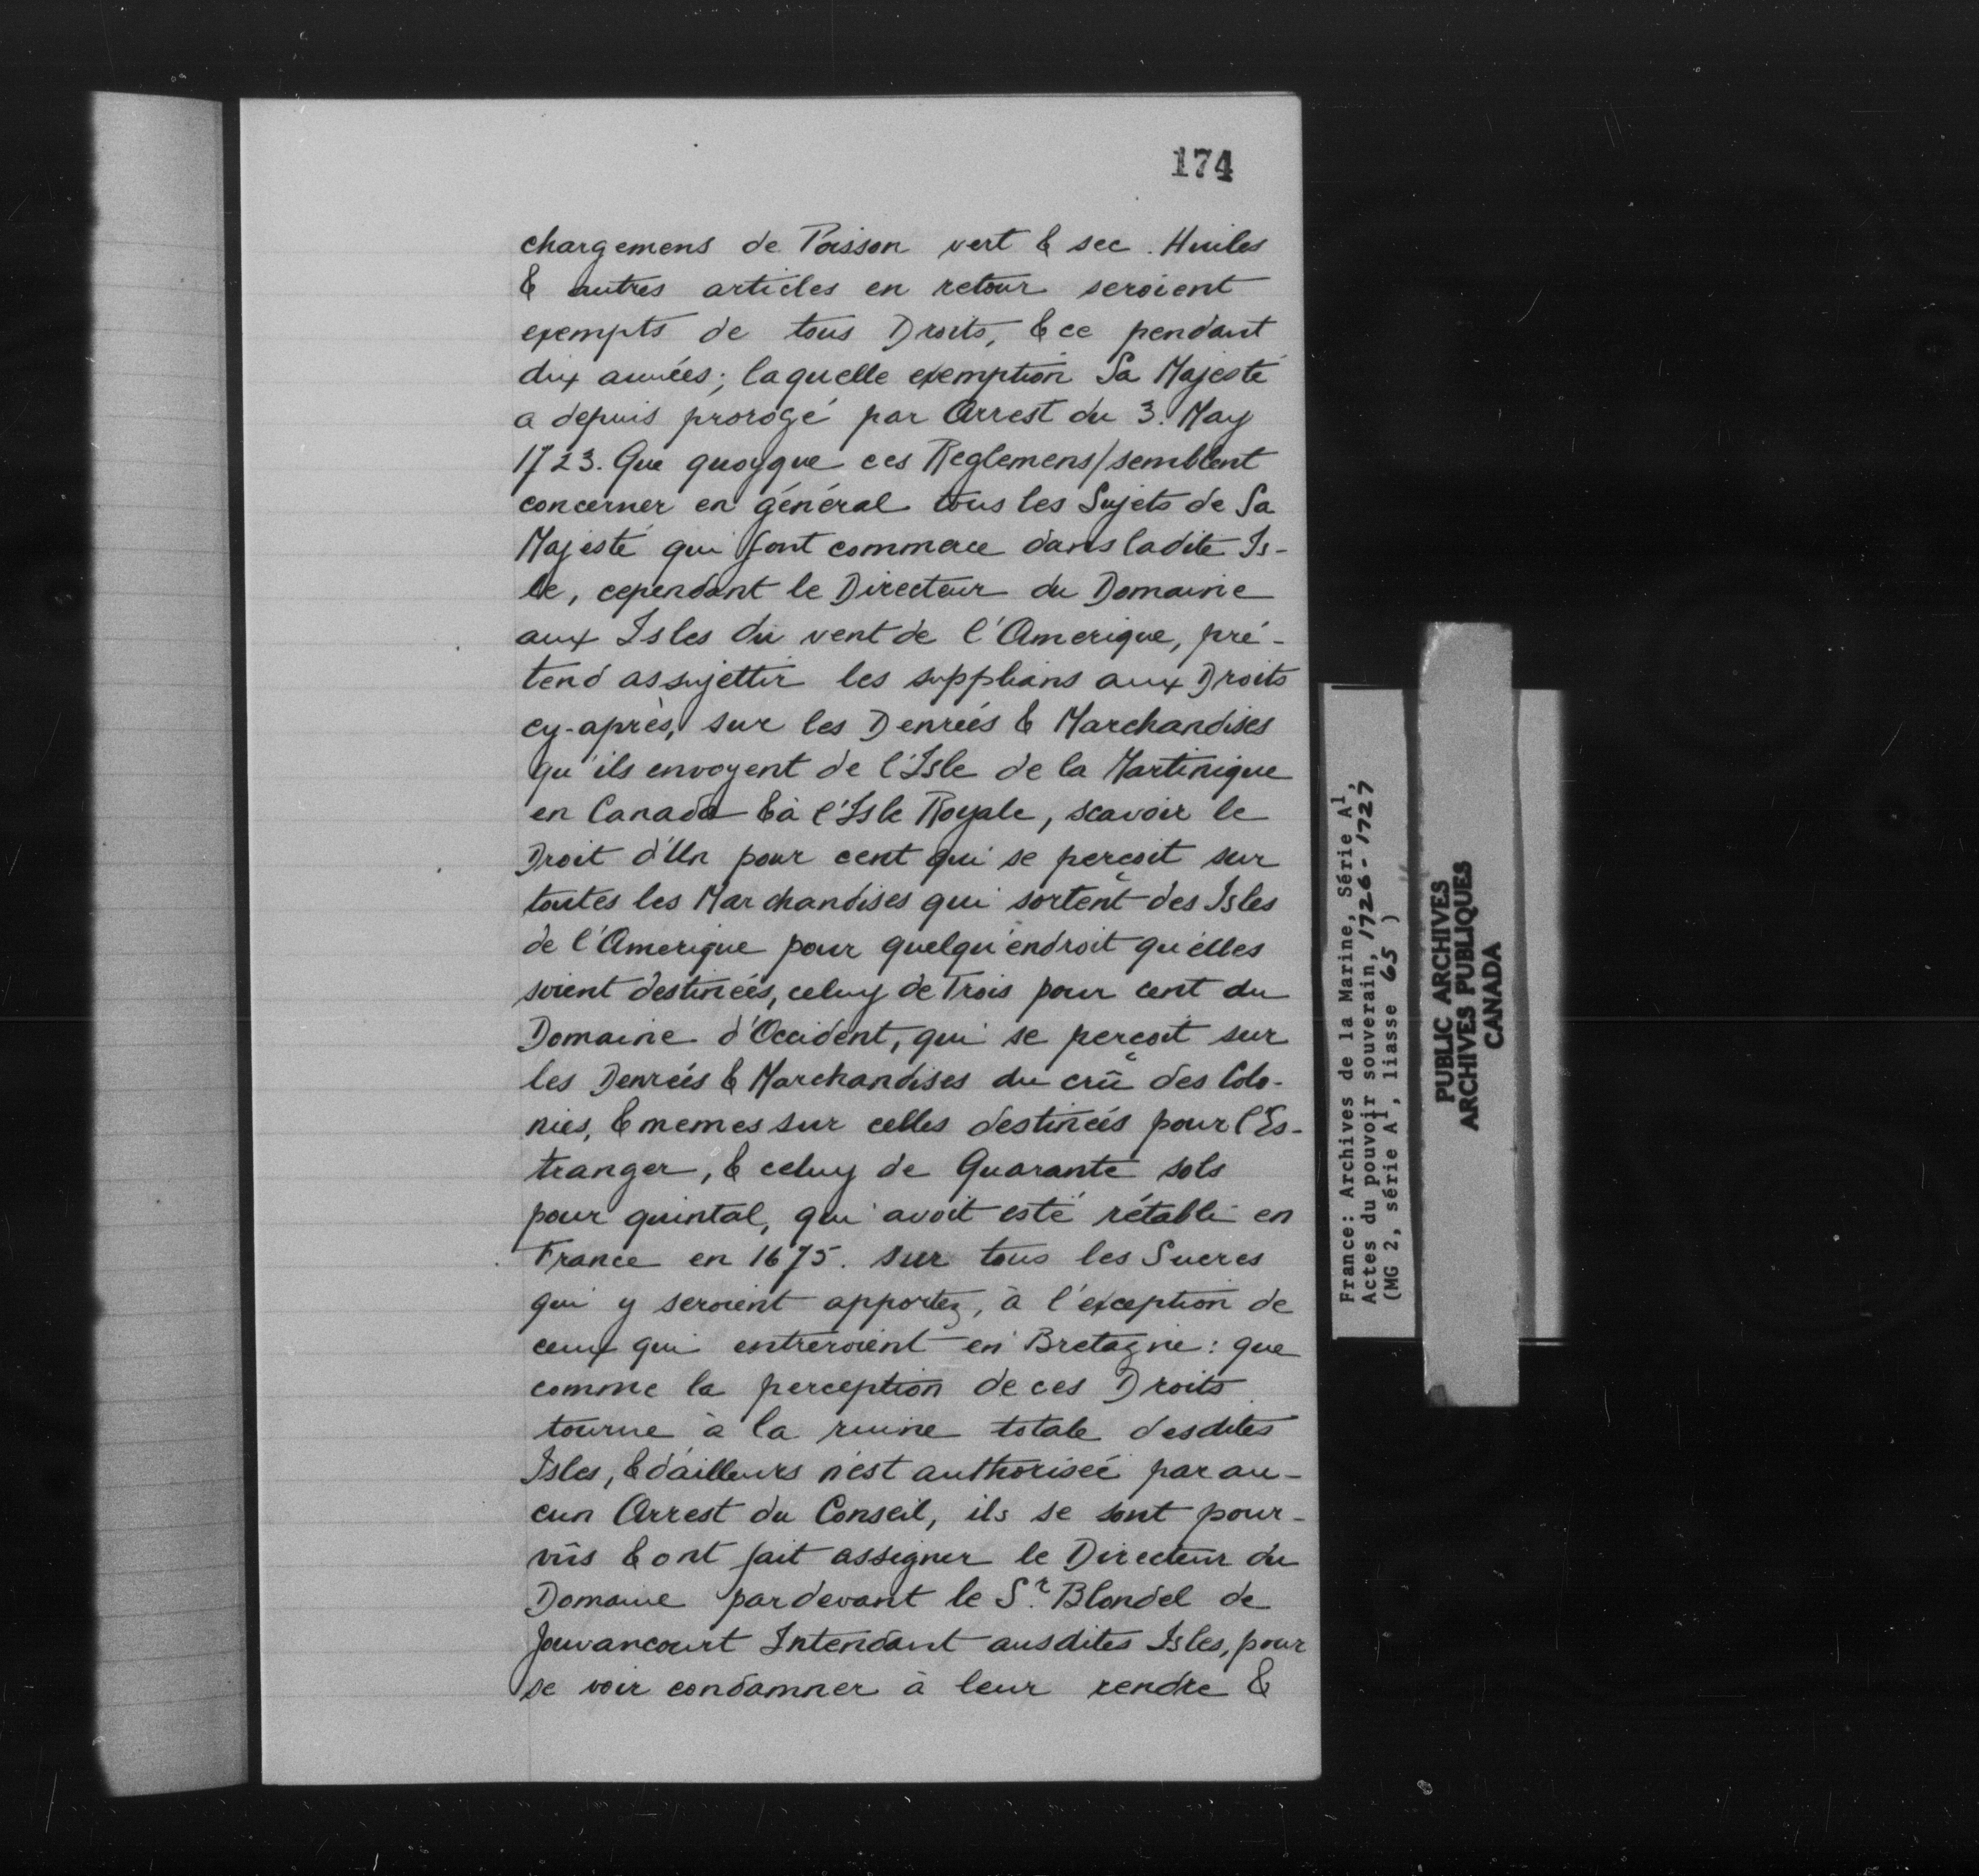 174
chargemens de Poisson vert & sec. Huiles
& autres articles en retour seroient
exempts de tous Droits, & ce pendant
dix années; laquelle exemption Sa Majesté
a depuis prorogé par Arrest du 3. May
1723. Que quoyque ces Reglemens/semblent
concerner en général tous les Sujets de Sa
Majesté qui font commerce dans ladite Is-
le, cependant le Directeur du Domaine
aux Isles du vent de l'Amerique, pré-
tend assujettir les supplians aux Droits
cy-après, sur les Denrées & Marchandises
qu'ils envoyent de l'Isle de la Martinique
en Canada & à l'Isle Royale, scavoir le
Droit d'Un pour cent qui se perçoit sur
toutes les Marchandises qui sortent des Isles
de l'Amerique pour quelqu'endroit qu'elles
soient destinées, celuy de Trois pour cent du
Domaine d'Occident, qui se perçoit sur
les Denrées & Marchandises du crû des Colo-
nies, & memes sur celles destinées pour l'Es-
tranger, & celuy de Quarante sols
pour quintal, qui avoit esté rétabli en
France en 1675. sur tous les Sucres
qui y seroient apportez, à l'exception de
ceux qui entreroient en Bretagne: que
comme la perception de ces Droits
tourne à la ruine totale desdites
Isles, & d'ailleurs n'est authorisée par au-
cun Arrest du Conseil, ils se sont pour-
vûs & ont fait assigner le Directeur du
Domaine pardevant le Sr. Blondel de
Jouvancourt Intendant ausdites Isles, pour
se voir condamner à leur rendre &
France: Archives de la Marine, Série A1,
Actes du pouvoir souverain, 1726-1727
(MG 2, série A1, liasse 65 )
PUBLIC ARCHIVES
ARCHIVES PUBLIQUES
CANADA